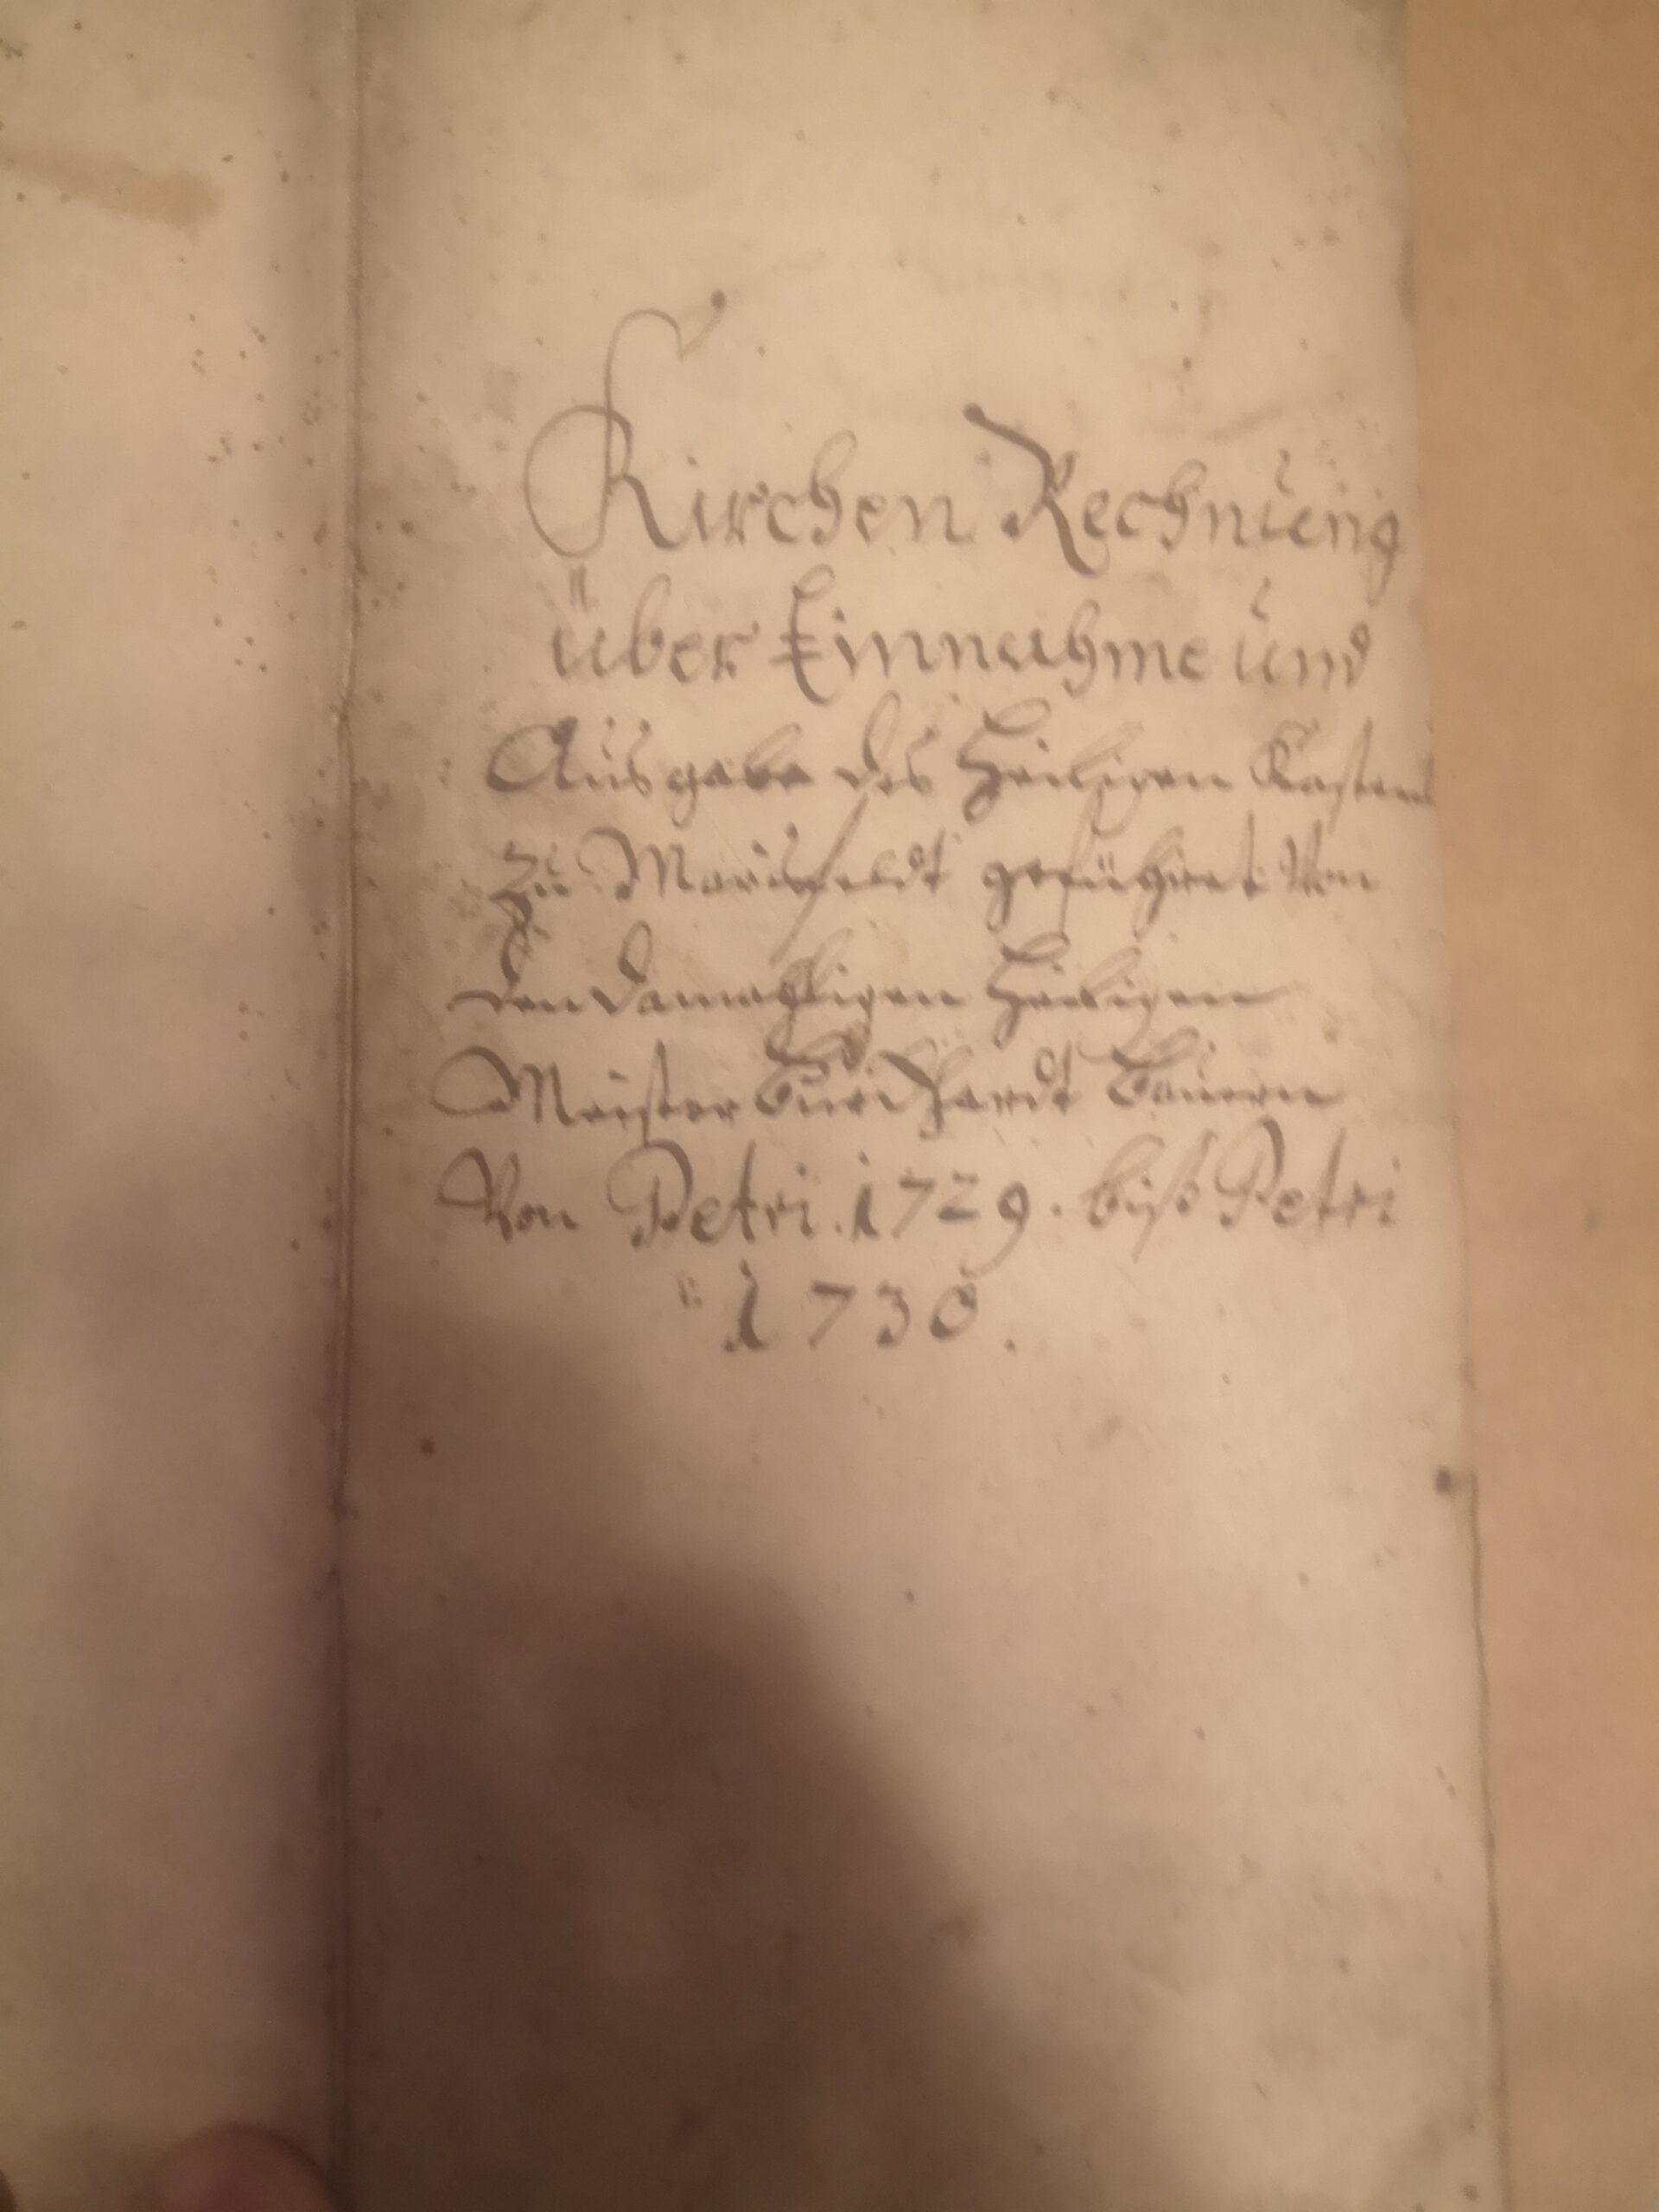 Kirchen Rechnung
über Einnahme und
Ausgabe des Heiligen Kastens
zu Marisfeldt geführet Von
den damahligen Heiligen
Meister Burckhardt Bauern
Von Petri. 1729. biß Petri
1730.